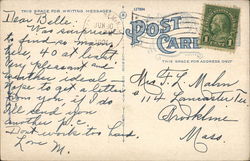 THIS SPACE FOR WRITING MESSAGES
Dear Belle
Was surprised
to find so many
here 40 at least
Very pleasant and
another ideal
Hope to get a letter
from you if I do
I'll send you
another P.C.
Dont work too hard.
Love M.
POST CARD
THIS SPACE FOR ADDRESS ONLY
Mrs F. L. Mahn
114 Lancaster Ter
Brookline
Mass.